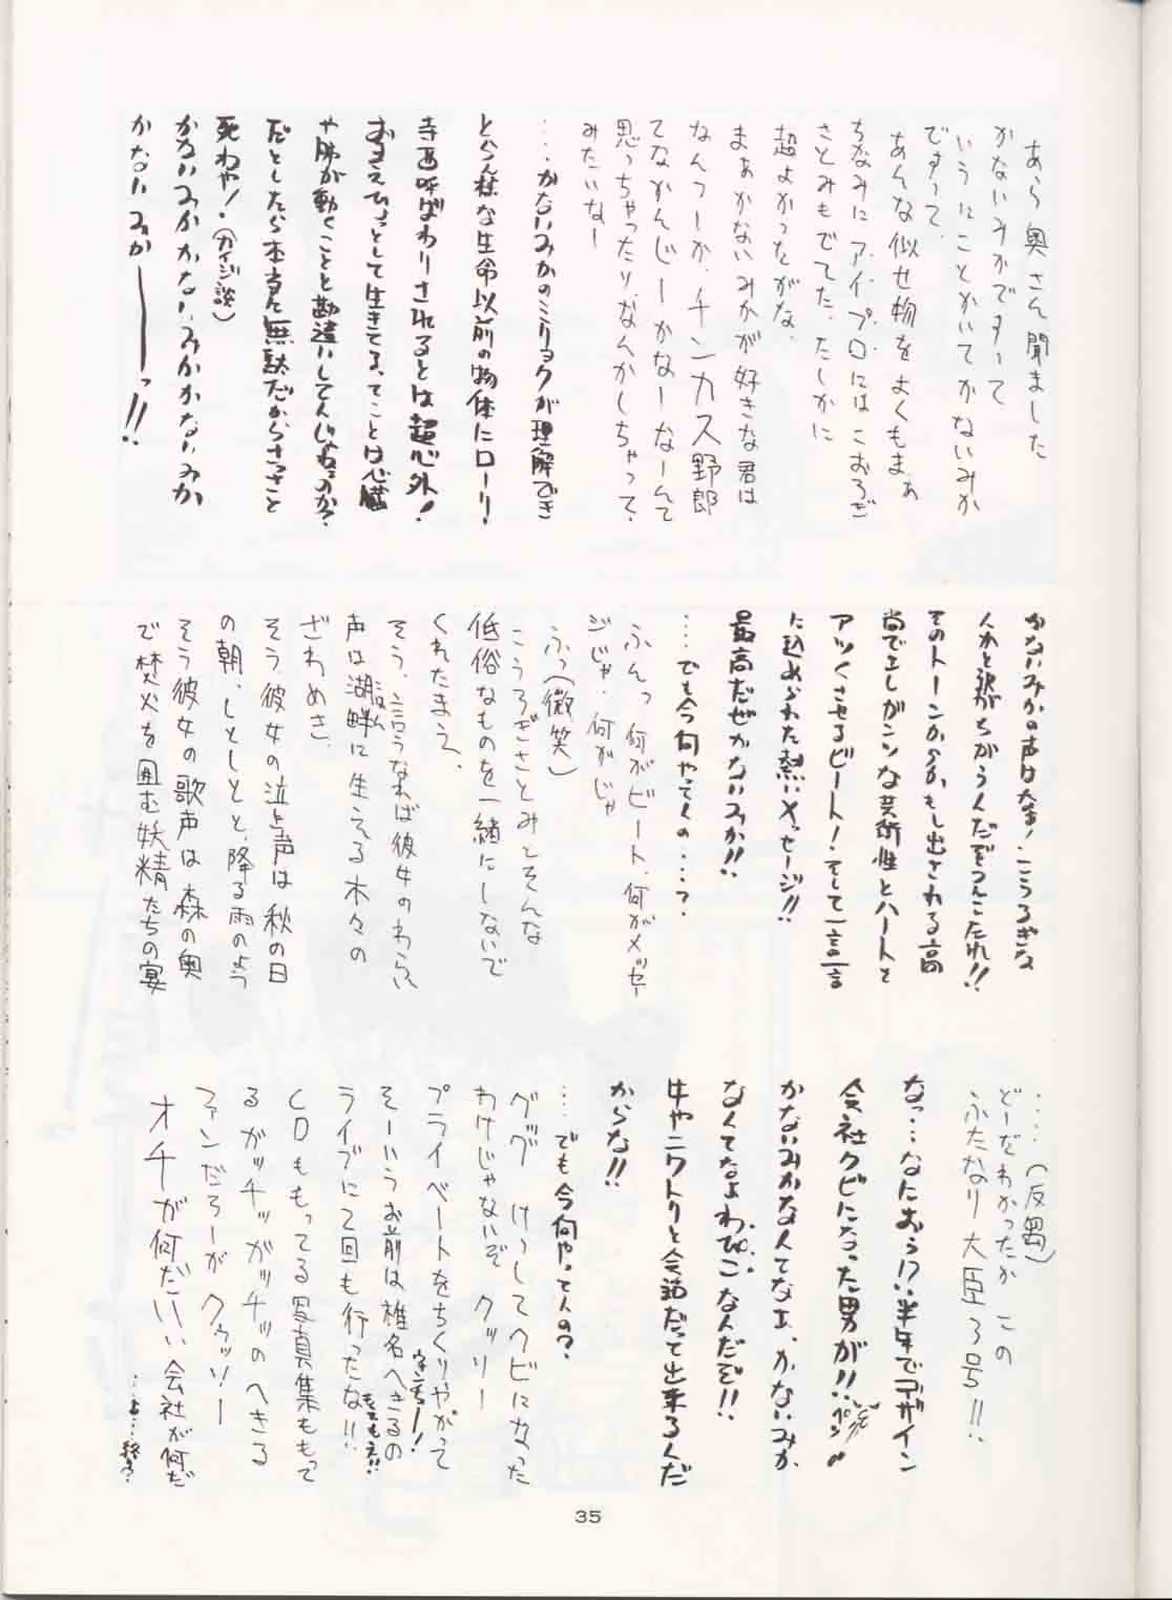 あら奥さん聞ました
かないみかですって
いうにことかいてかないみか
ですって、
あんな似せ物をよくもまぁ
ちなみにアイ・プロにはこおろぎ
さとみもでてた、たしかに
超よかったがな、
まぁかないみかが好きな君は
なんつーか、チンカス野郎
てなかんじーかなーなーんて
思っちゃったり、なんかしちゃって、
みたいなー
…かないみかのミリョクが理解でき
とらん様な生命以前の物体にローリ!
寺西呼ばわりされるとは超心外!
おまえひょっとして生きてる、てことは心臓
や肺が動くことと勘違いしてんじゃねえのか?
だとしたら本当に無駄だからさっさと
死ねや!(カイジ談)
かないみかかないみかかないみか
かないみかーーーっ!!
かないみかの声は大事!こうろぎな
んかと訳がちがうんだぞつんこたれ!!
そのトーンからかもし出される高
尚でエレガンンな芸術性とハートを
アツくさせるビート!そして一言一言
に込められた熱いメッセージ!!
最高だぜかないみか!!
…でも今何やってんの…?
ふんっ何がビート、何がメッセー
ジじゃ、何がじゃ
ふっ(微笑)
こうろぎさとみとそんな
低俗なものを一緒にしないで
くれたまえ、
そう、言うなれば彼女のわらい
声は湖畔に生える木々の
こはん
ざわめき、
そう彼女の泣き声は秋の日
の朝、しとしとと、降る雨のよう
そう彼女の歌声は森の奥
で焚火を囲む妖精たちの宴
……(反芻)
どーだわかったかこの
ふたなり大臣3号!!
なっ…なにおぅ!?半年でデザイン
会社クビになった男が!!
かないみかなんてなエ、かないみか
なくてなよわぴこなんだぞ!!
牛やニワトリと会話だって出来るんだ
からな!!
…でも今何やってんの?
ググ けっしてクビになった
わけじゃないぞクッソー
プライベートをちくりやがって
そーいうお前は椎名へきるの
ライブにて回も行ったな!!
もってもえ!!
CDももってる写真集ももって
るガッチッガッチッのへきる
ファンだろーがクゥッソー
オチが何だいい会社が何だ
…よ…終る?
35